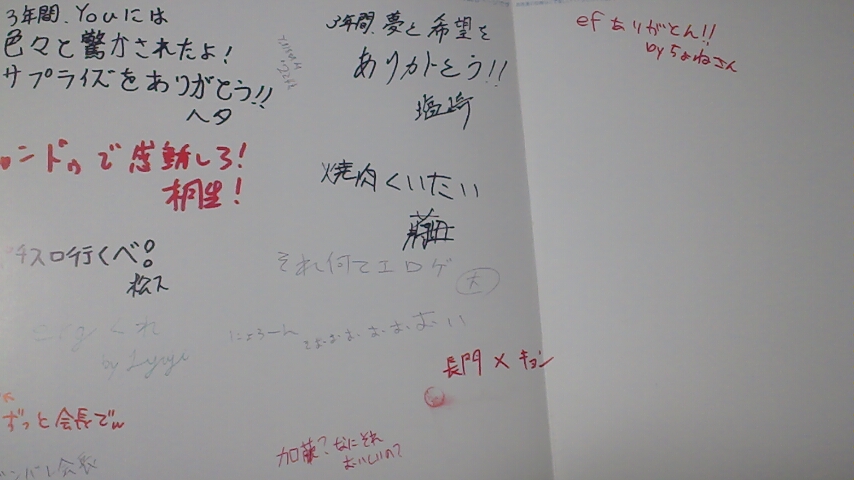 3年間、Youには
色々と驚かされたよ!
サプライズをありがとう!!
ヘタ
3年間、夢と希望を
ありがとう!!
塩崎
efありがとん!!
byちよねさん
ンドゥで感動しろ!
桐生!
焼肉くいたい
スロ行くべ。
それ何てエロゲ
くれ
by
にょろーん
長門×キョン
ずっと会長でw
加藤?なにそれ
おいしいの?
会長